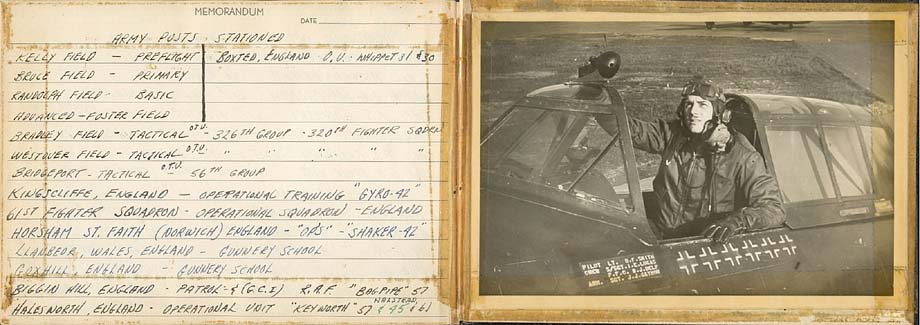 MEMORANDUM
DATE
ARMY POSTS STATIONED
KELLY FIELD - PREFLIGHT
BRUCE FIELD - PRIMARY
RANDOLPH FIELD - BASIC
ADVANCED - FOSTER FIELD
BOXTED, ENGLAND O.U. WHIPPET 31 & 30
BRADLEY FIELD - TACTICAL O.T.U. - 326TH GROUP - 320TH FIGHTER SQDRN
WESTOVER FIELD - TACTICAL O.T.U. " " " " "
BRIDGEPORT - TACTICAL O.T.U. 56TH GROUP
KINGSCLIFFE, ENGLAND - OPERATIONAL TRAINING "GYRO-42"
61ST FIGHTER SQUADRON - OPERATIONAL SQUADRON - ENGLAND
HORSHAM ST. FAITH (NORWICH) ENGLAND - "OPS" - "SHAKER-42"
LLANBEDR, WALES, ENGLAND - GUNNERY SCHOOL
GOXHILL, ENGLAND - GUNNERY SCHOOL
BIGGIN HILL, ENGLAND - PATROL - & (G.C.I) R.A.F "BAGPIPE" 57
HALESWORTH, ENGLAND - OPERATIONAL UNIT "KEYWORTH" 57 HALSTEAD & 45 & 61
PILOT LT.
CREW S/SGT.
ARM. SGT.